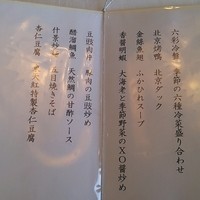 六彩冷盤 季節の六種冷菜盛り合わせ
北京烤鴨 北京ダック
金銀魚翅 ふかひれスープ
香醤明蝦 大海老と季節野菜のXO醤炒め
豆豉肉片 豚肉の豆豉炒め
醋溜鯛魚 天然鯛の甘酢ソース
什景炒 目焼きそば
杏仁豆腐 紅特製杏仁豆腐